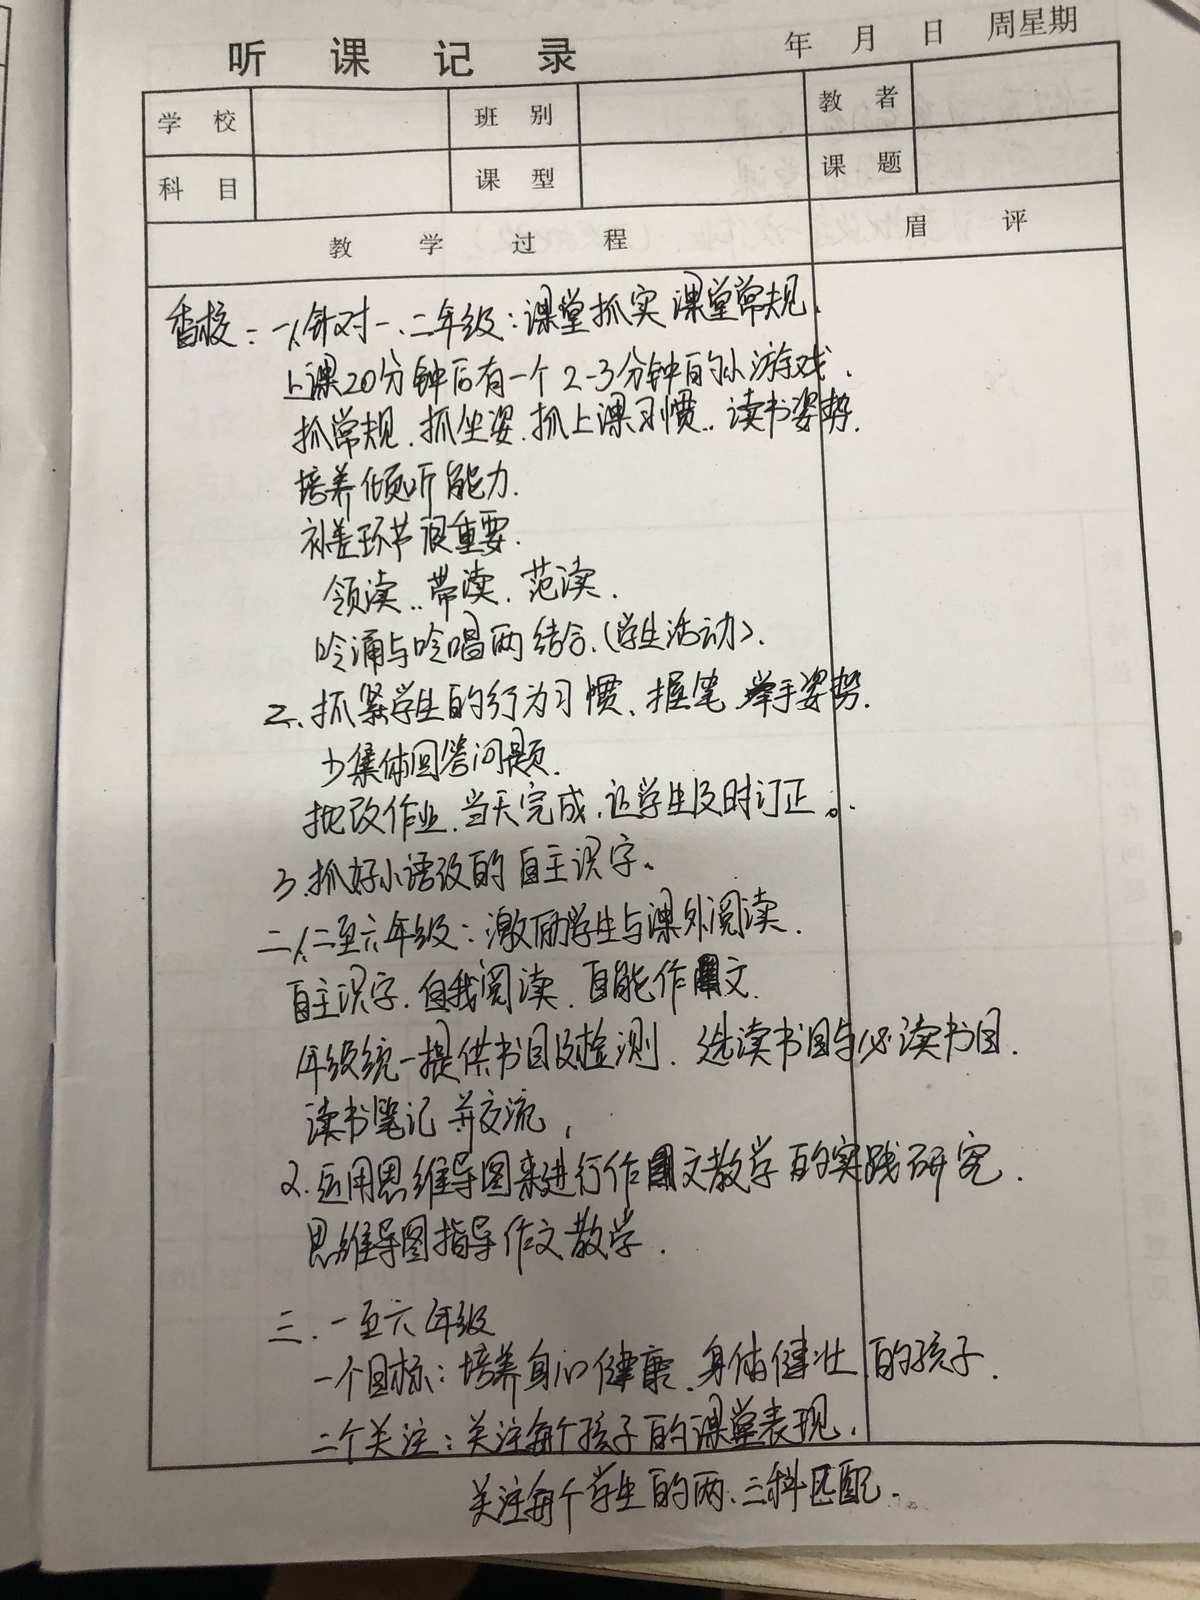 听课记录 年 月 日 周星期
学校 班别 教者
科目 课型 课题
教学过程 眉评
香校：一、1.针对一、二年级：课堂抓实课堂常规，
上课20分钟后有一个2-3分钟的小游戏，
抓常规、抓坐姿、抓上课习惯、读书姿势.
培养倾听能力.
补差环节很重要.
领读、带读、范读.
吟诵与吟唱两结合.(学生活动).
2.抓紧学生的行为习惯、握笔、举手姿势.
少集体回答问题.
批改作业、当天完成,让学生及时订正。
3.抓好小语改的自主识字。
二、1.二至六年级：激励学生与课外阅读.
自主识字.自我阅读、自能作文.
年级统一提供书目及检测、选读书目与必读书目.
读书笔记并交流，
2.运用思维导图来进行作文教学的实践研究.
思维导图指导作文教学.
三、一至六年级
一个目标：培养身心健康、身体健壮的孩子.
二个关注：关注每个孩子的课堂表现，
关注每个学生的两、三科匹配.